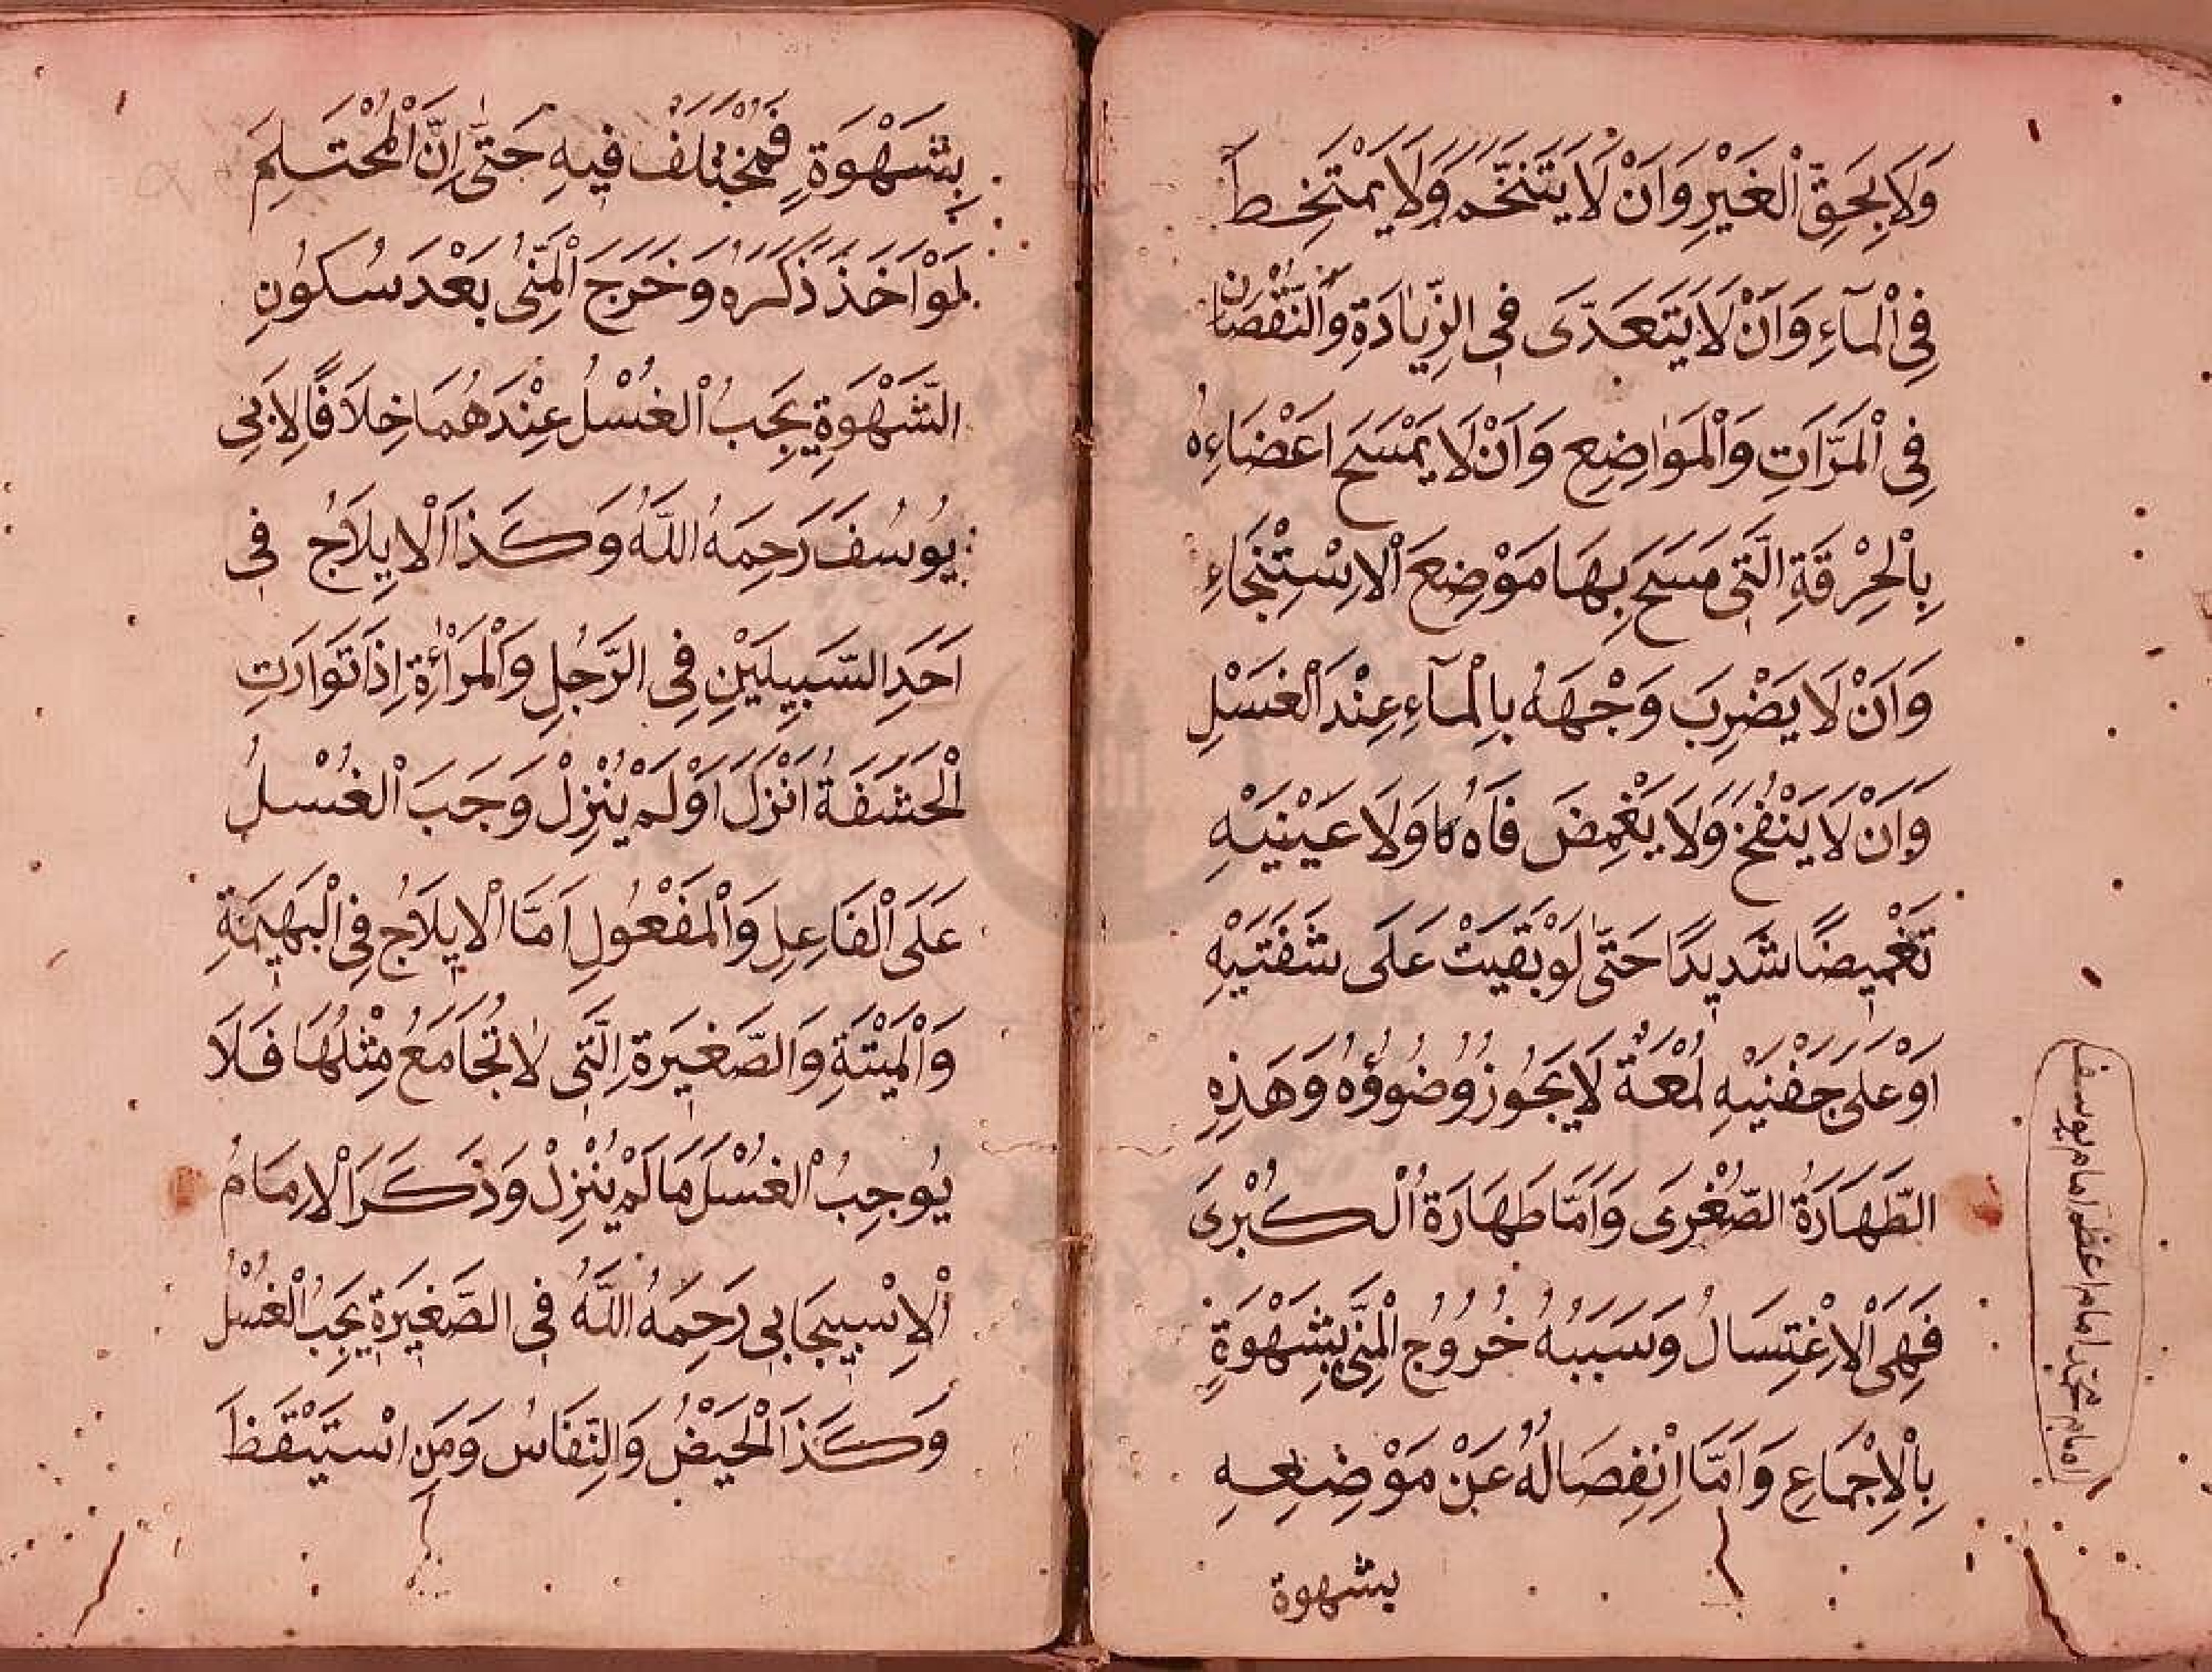 وَلَا بِحَقِّ الْغَيْرِ وَاَنْ لَا يَتَنَخَّمَ وَلَا يَمْتَخِطَ
فِى الْمَآءِ وَاَنْ لَا يَتَعَدّٰى فِى الزِّيَادَةِ وَالنُّقْصَانِ
فِى الْمَرَّاتِ وَالْمَوَاضِعِ وَاَنْ لَا يَمْسَحَ اَعْضَاءِهُ
بِالْخِرْقَةِ الَّتِى مَسَحَ بِهَا مَوْضِعَ الْاِسْتِنْجَاءِ
وَاَنْ لَا يَضْرِبَ وَجْهَهُ بِالْمَآءِ عِنْدَ الْغَسْلِ
وَاَنْ لَا يَنْفُخَ وَلَا يَغْمِضَ فَاهُ وَلَا عَيْنَيْهِ
تَغْمِيضًا شَدِيدًا حَتّٰى لَوْ بَقِيَتْ عَلَى شَفَتَيْهِ
اَوْ عَلَى جَفْنَيْهِ لُمْعَةٌ لَا يَجُوزُ وُضُوؤُهُ وَهَذِهِ
الطَّهَارَةُ الصُّغْرَى وَاَمَّا طَهَارَةُ الْكُبْرَى
فَهِىَ الْاِغْتِسَالُ وَسَبَبُهُ خُرُوجُ الْمَنِىِّ بِشَهْوَةٍ
بِالْاِجْمَاعِ وَاَمَّا اِنْفِصَالُهُ عَنْ مَوْضِعِهِ
بشهوة
امام محمد امام اعظم امام يوسف
بِشَهْوَةٍ فَمُخْتَلَفٌ فِيهِ حَتّٰى اِنَّ الْمُحْتَلِمَ
لَوْ اَخَذَ ذَكَرَهُ وَخَرَجَ الْمَنِىُّ بَعْدَ سُكُونِ
الشَّهْوَةِ يَجِبُ الْغُسْلُ عِنْدَهُمَا خِلَافًا لِاَبِى
يُوسُفَ رَحِمَهُ اللّٰهُ وَكَذَا الْاِيلَاجُ فِى
اَحَدِ السَّبِيلَيْنِ فِى الرَّجُلِ وَالْمَرْأَةِ اِذَا تَوَارَتِ
الْحَشَفَةُ اَنْزَلَ اَوْ لَمْ يُنْزِلْ وَجَبَ الْغُسْلُ
عَلَى الْفَاعِلِ وَالْمَفْعُولِ اَمَّا الْاِيلَاجُ فِى الْبَهِيمَةِ
وَالْمَيْتَةِ وَالصَّغِيرَةِ الَّتِى لَا تُجَامَعُ مِثْلُهَا فَلَا
يُوجِبُ الْغُسْلَ مَا لَمْ يُنْزِلْ وَذَكَرَ الْاِمَامُ
الْاِسْبِيجَابِى رَحِمَهُ اللّٰهُ فِى الصَّغِيرَةِ يَجِبُ الْغُسْلُ
وَكَذَا الْحَيْضُ وَالنِّفَاسُ وَمَنِ اسْتَيْقَظَ